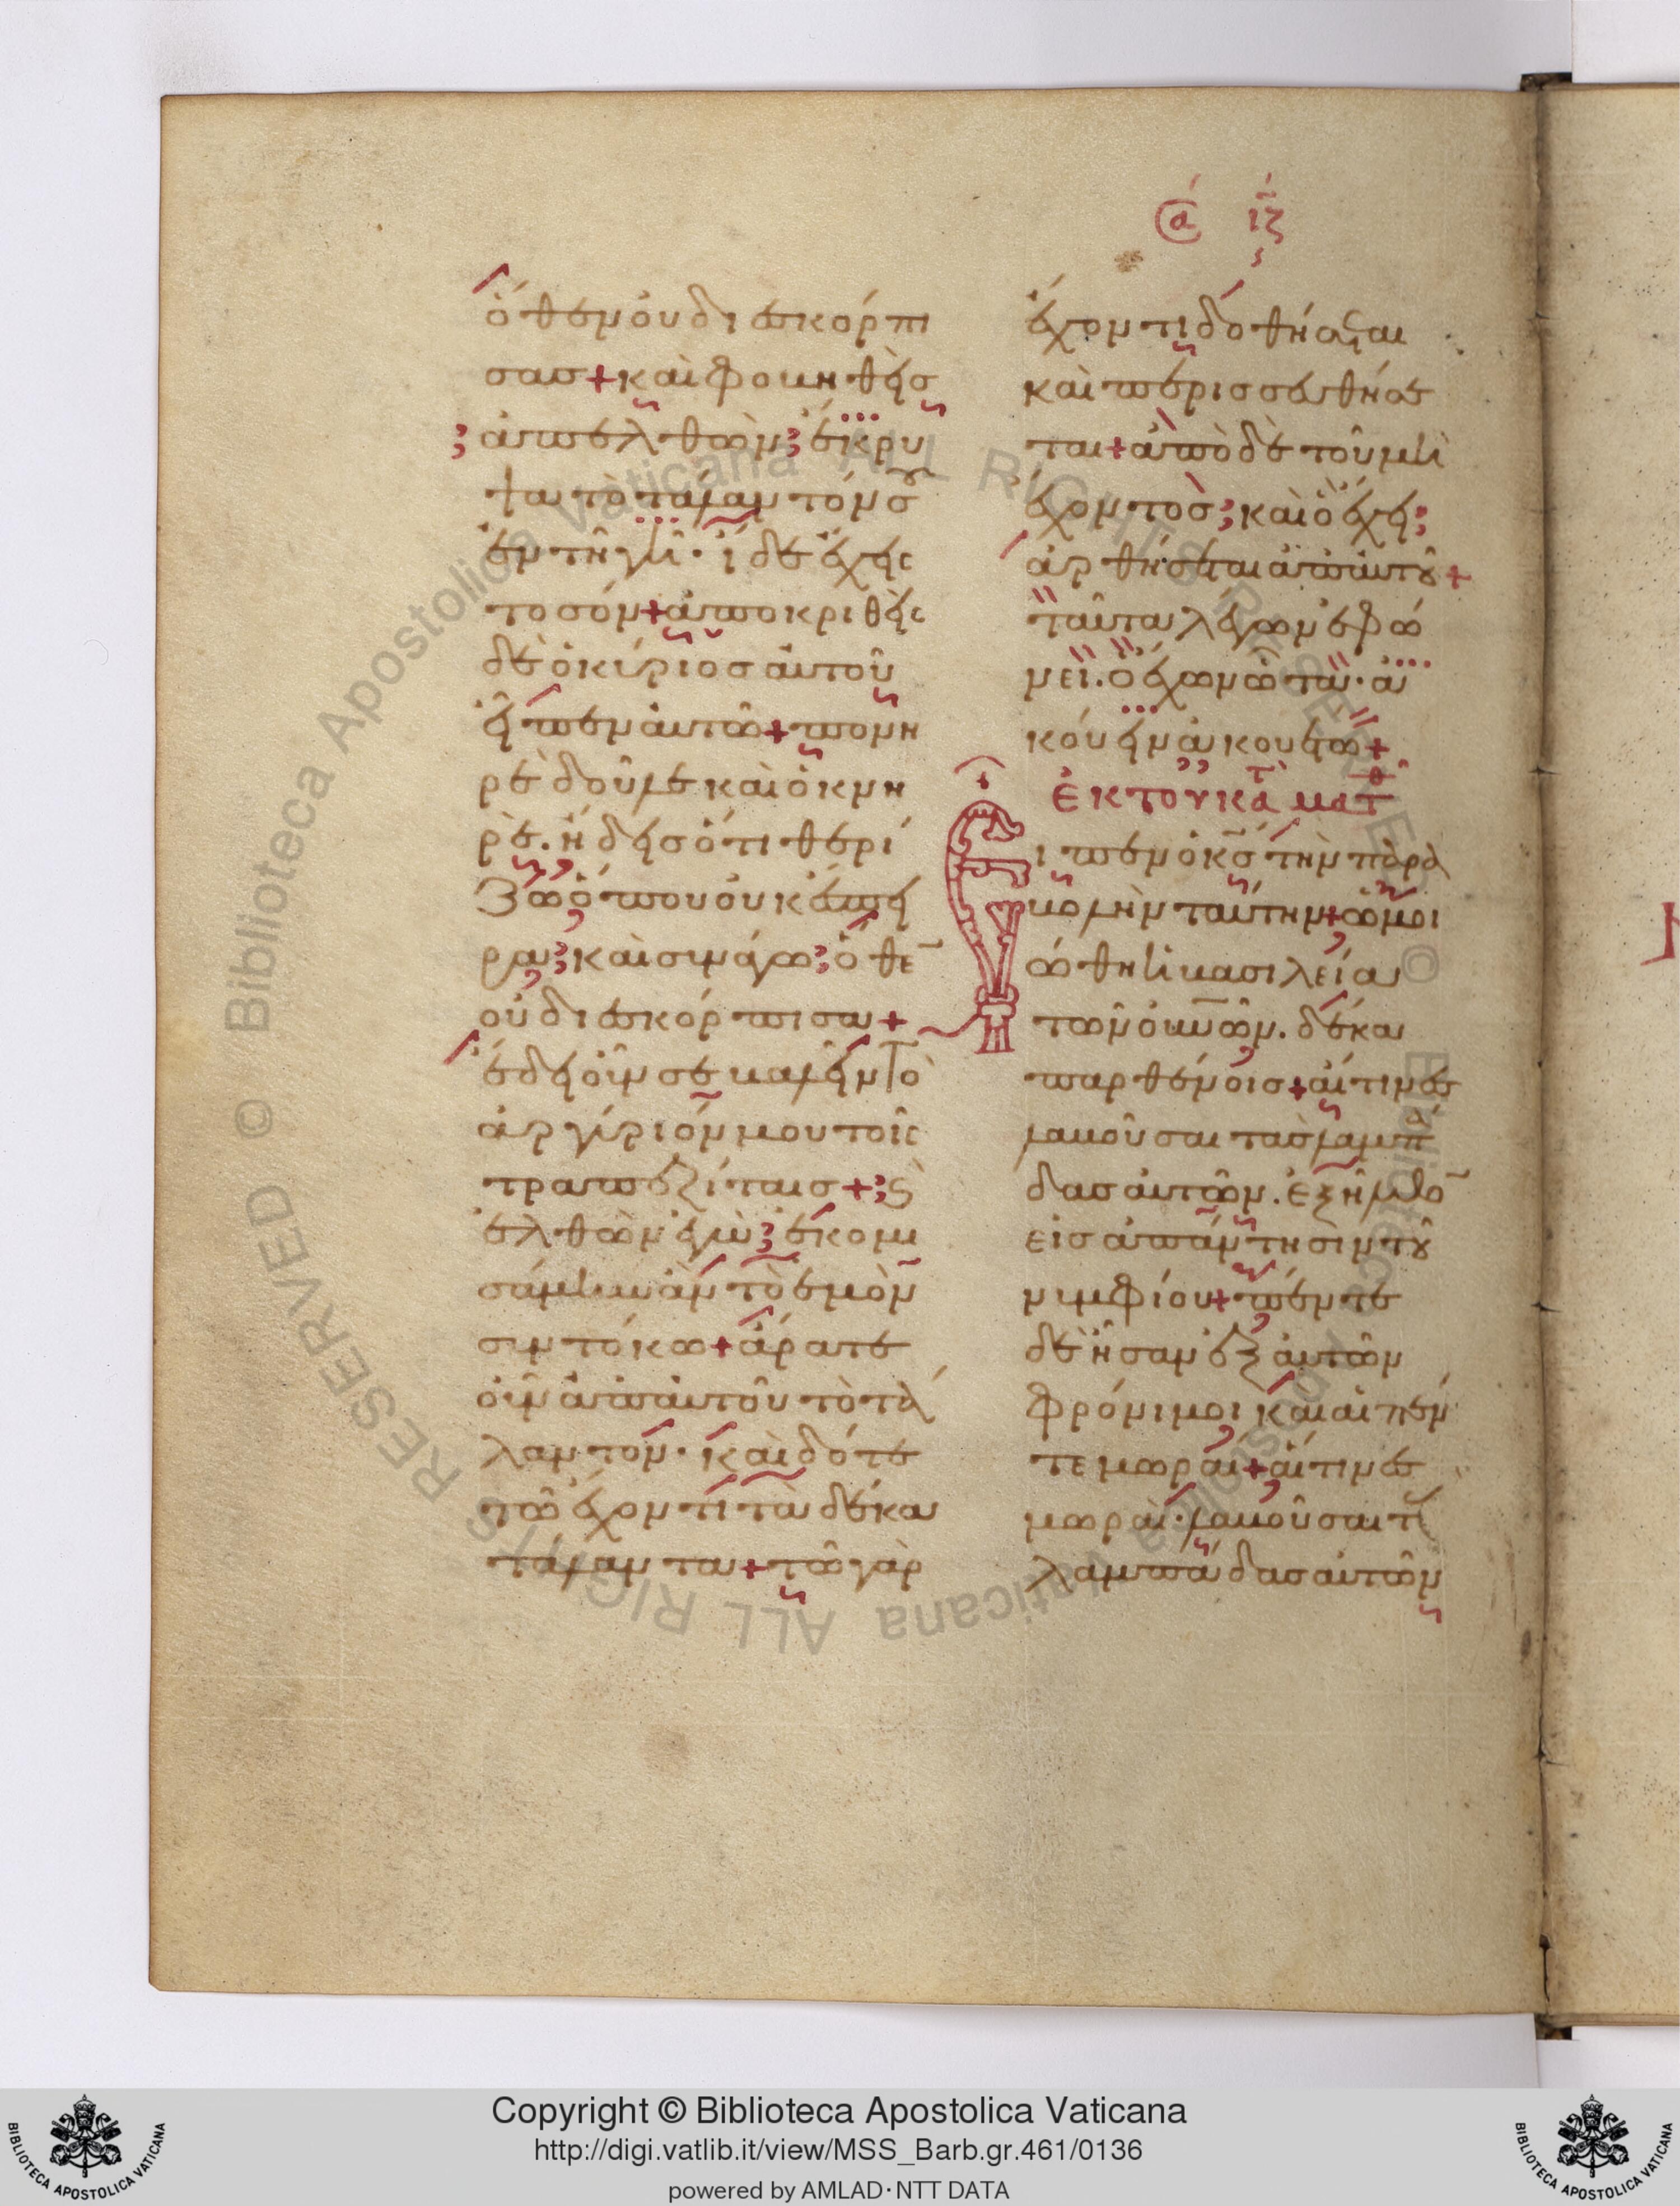 ὅθεν οὐ διεσκόρπι
σας + καὶ φοβηθεὶς
ἀπελθὼν ἔκρυ
ψα τὸ τάλαντόν σου
ἐν τῇ γῇ · ἴδε ἔχεις
τὸ σόν + ἀποκριθεὶς
δὲ ὁ κύριος αὐτοῦ
εἶπεν αὐτῷ + πονη
ρὲ δοῦλε καὶ ὀκνη
ρέ. ᾔδεις ὅτι θερί
ζω ὅπου οὐκ ἔσπει
ρα; καὶ συνάγω; ὅθε̅
οὐ διεσκόρπισα +
ἔδει οὖν σε βαλεῖν τὸ
ἀργύριόν μου τοῖς
τραπεζίταις + ; ϗ
ἐλθὼν ἐγὼ; ἐκομι
σάμην ἂν τὸ ἐμὸν
σὺν τόκω + ἄρατε
οὖν ἀπ' αὐτοῦ τὸ τά
λαντον · καὶ δότε
τῷ ἔχοντι τὰ δέκα
τάλαντα + τῷ γὰρ
α ιζ
ἔχοντι δοθήσεται
καὶ περισσευθήσε
ται + ἀπὸ δὲ τοῦ μὴ
ἔχοντος; καὶ ὃ ἔχει;
ἀρθήσεται ἀπ' αὐτοῦ +
ταῦτα λέγων ἐφώ
νει. ὁ ἔχων ὦτα · ἀ
κούειν ἀκουέτω +
ἐκ τοῦ κατὰ ματθ
Εἶπεν ὁ κς̅ τὴν παρα
βολὴν ταύτην + ὡμοι
ώθη ἡ βασιλεία
τῶν οὐνῶν. δέκα
παρθένοις + αἵτινες
λαβοῦσαι τὰς λαμπά
δας αὐτῶν. ἐξῆλθο̅
εἰς ἀπάντησιν τοῦ
νυμφίου + πέντε
δὲ ἦσαν ἐξ αὐτῶν
φρόνιμοι καὶ αἱ πέν
τε μωραί + αἵτινες
μωραὶ · λαβοῦσαι τὰς
λαμπάδας αὐτῶν
Copyright © Biblioteca Apostolica Vaticana
http://digi.vatlib.it/view/MSS_Barb.gr.461/0136
powered by AMLAD·NTT DATA
BIBLIOTECA APOSTOLICA VATICANA
BIBLIOTECA APOSTOLICA VATICANA
© Biblioteca Apostolica Vaticana ALL RIGHTS RESERVED
© Biblioteca Apostolica Vaticana ALL RIGHTS RESERVED